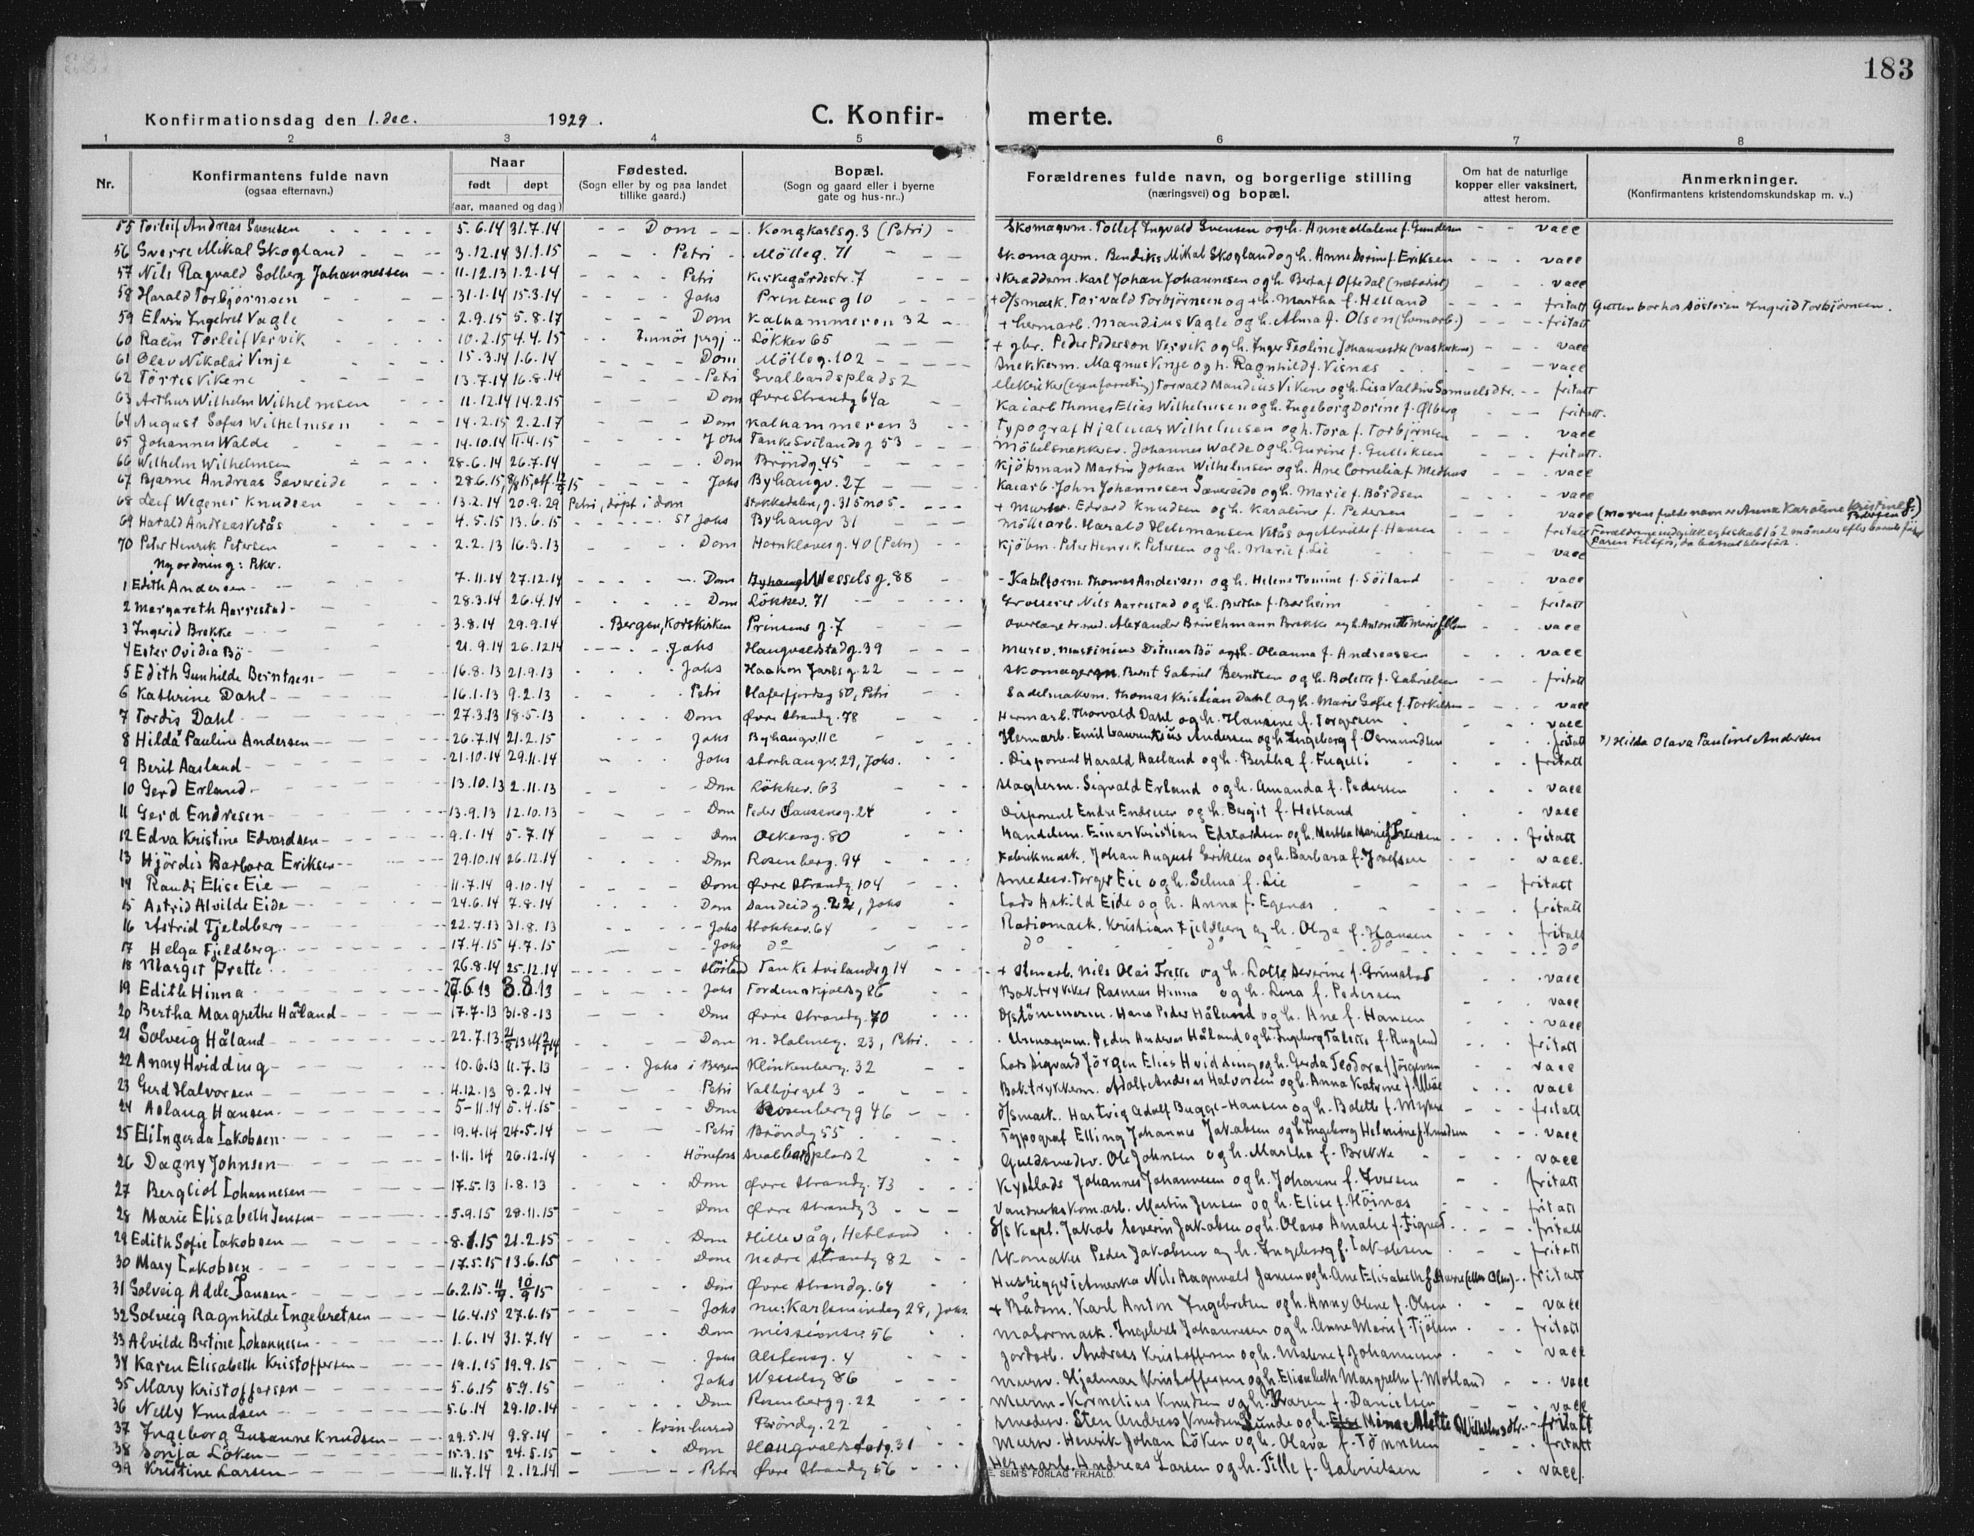 183
Konfirmationsdag den 1. dec. 1929. C. Konfirmerte.
1 2 3 4 5 6 7 8
Nr. Konfirmantens fulde navn (ogsaa efternavn.) Naar født døpt (aar, maaned og dag) Fødested. (Sogn eller by og paa landet tillike gaard.) Bopæl. (Sogn og gaard eller i byerne gate og hus-nr..) Forældrenes fulde navn, og borgerlige stilling (næringsvei) og bopæl. Om hat de naturlige kopper eller vaksinert, attest herom. Anmerkninger. (Konfirmantens kristendomskundskap m. v..)
55 Torleif Andreas Svensen 5.6.14 31.7.14 Dom Kongkarlsg. 3 (Petri) Skomagerm. Tollef Ingvald Svensen og h. Anna Malene f. Gundersen vacc
56 Sverre Mikal Skogland 3.12.14 31.1.15 Petri Mølleg. 71 Skomagerm. Bendiks Mikal Skogland og h. Anne Dorin f. Eriksen vacc
57 Nils Ragvald Solberg Johannessen 11.12.13 1.2.14 Petri Kirkegårdsstr. 7 Skræddem. Karl Johan Johannesen og h. Berta f. Oftedal (metodist) vacc
58 Harald Torbjørnsen 31.1.14 15.3.14 Johs Prinsens g 10 + d/s mask. Torvald Torbjørnsen og + h. Martha f. Helland fritatt Gutten bor hos søsteren Ingrid Torbjørnsen.
59 Elvin Ingebret Vagle 2.9.15 5.8.17 Dom Kalhammeren 32 + hermarb. Mandius Vagle og h. Alma f. Olsen (hermarb.) fritatt
60 Racin Torleif Vervik 10.2.15 4.4.15 Løkkev 65 + gbr. Peder Pederson Vervik og h. Inger Teoline Johannesdtr vacc
61 Olav Nikolai Vinje 15.3.14 1.6.14 Dom Mølleg. 102 Snekkerm. Magnus Vinje og h. Ragnhild f. Visnes vacc
62 Tørres Vikene 13.7.14 16.8.14 Petri Svalbardsplads 2 elektriker (egen forretnig) Torvald Mandius Vikene og h. Lisa Valdine Samuelsdtr. fritatt
63 Arthur Wilhelm Wilhelmsen 11.12.14 14.2.15 Dom Øvre Strandg 64a Kaiarb Thomas Elias Wilhelmsen og h. Ingeborg Dorine f. Ølberg fritatt.
64 August Sofus Wilhelmsen 14.2.15 2.2.17 Dom Kalhammeren 3 Typograf Hjalmar Wilhelmsen og h. Tora f. Torbjørnsen vacc
65 Johannes Walde 14.10.14 Johs Tanke Svilandsg 53 Møbelsnekker. Johannes Walde og h. Gurine f. Gulliksen fritatt.
66 Wilhelm Wilhelmsen 28.6.14 26.7.14 Dom Brøndg. 45 Kjøbmand Martin Johan Wilhelmsen og h. Ane Cornelia f. Medhus vacc
67 Bjarne Andreas Sævereide 28.6.15 Johs Byhaugv. 27 Kaiarb. John Johannesen Sævereide og h. Marie f. Bårdsen vacc
68 Leif Wegener Knudsen 13.2.14 20.9.29 Petri, døpt i dom Stokkedalen, g. 315 no 5 + Murer Edvard Knudsen og h. Karoline f. Pedersen vacc (Morens fulde navn er Anna Karoline Kristine f. Pedersen)
69 Harald Andreas Vetås 4.5.15 13.6.15 St Johs Byhaugv 31 Møllearb. Harald Helmansen Vetås og Astrid f. Hansen fritatt
70 Peter Henrik Petersen 2.2.13 16.3.13 Dom Hornklovesg. 40 (Petri) Kjøbm. Peter Henrik Petersen og h. Marie f. Lie vacc
Ny ordning: Piker.
1 Edith Andersen 7.11.14 27.12.14 Dom Wesselsg. 88 Kabelform. Thomas Andersen og h. Helene Tomine f. Söiland vacc
2 Margareth Aarrestad 28.3.14 26.4.14 Dom Løkkev. 71 Grosserer Nils Aarrestad og h. Bertha f. Barheim fritatt
3 Ingerid Brekke 3.8.14 29.9.14 Bergen, Korskirken Prinsens g. 7 overlæge dr. med. Alexander Brinchmann Brekke og h. Antonette Marie vacc
4 Ester Ovidia Bö 21.9.14 26.12.14 Johs Haugvaldstadg. 39 Murer. Martinius Ditmar Bö og h. Oleanna f. Andreassen vacc
5 Edith Gunhilde Berntsen 16.8.13 21.9.13 Johs Haakon Jarlsg. 22 Skomagerm. Bernt Gabriel Berntsen og h. Bolette f. Gabrielsen fritatt
6 Kathrine Dahl 16.1.13 9.2.13 Petri Hafrsfjordsg 50, Petri Sadelmakerm. Thomas Kristian Dahl og h. Marie Sofie f. Torkilsen vacc
7 Tordis Dahl 27.3.13 18.5.13 Dom Øvre Strandg. 78 Hermarb. Thorvald Dahl og h. Hansine f. Torgersen vacc
8 Hilda Pauline Andersen 26.7.14 21.2.15 Johs Byhaugv. 11c Hermarb. Emil Laurentius Andersen og h. Ingeborg f. Osmundsen fritatt *) Hilda Olava Pauline Andersen
9 Berit Aasland 21.10.14 29.11.14 Johs Storhaugv. 29, Johs. Disponent Harald Aasland og h. Bertha f. Fugelli fritatt
10 Gerd Erland 13.10.13 2.11.13 Dom Løkkev. 63 Slagterm. Sigvald Erland og h. Amanda f. Pedersen vacc
11 Gerd Endresen 13.9.13 12.10.13 Dom Peder Clausens g. 24 Disponent Endre Endresen og h. Bergit f. Hetland vacc
12 Edva Kristine Edvardsen 9.1.14 5.7.14 Dom Oskarsg. 80 Handelsm. Einar Kristian Edvardsen og h. Martha Marie f. Petersen fritatt
13 Hjördis Barbara Eriksen 29.10.14 26.12.14 Dom Rosenberg. 94 Fabrikmask. Johan August Eriksen og h. Barbara f. Josefsen vacc.
14 Randi Elise Eie 11.7.14 9.10.14 Dom Øvre Strandg 104 Smedesv. Torger Eie og h. Selma f. Lie fritatt
15 Astrid Alvilde Eide 24.6.14 7.8.14 Dom Sandeidg. 22, Johs Lods Askild Eide og h. Anna f. Egenæs fritatt
16 Astrid Fjeldberg 22.7.13 31.8.13 Johs Stokkav. 64 Radiomask. Kristian Fjeldberg og h. Olga f. Hansen fritatt
17 Helga Fjeldberg 17.4.15 4.7.15 Johs do do do do
18 Margit Frette 26.8.14 25.12.14 Tanke Svilandsg 14 + Stenarb. Nils Olai Frette og h. Lotte Severine f. Grimstad vacc
19 Edith Hinna 27.6.13 3.8.13 Johs Tordenskjoldsg 86 Boktrykker Rasmus Hinna og h. Lena f. Pedersen vacc
20 Bertha Margrethe Håland 17.7.13 31.8.13 Dom Øvre Strandg. 70 D/s tömmerm. Hans Peder Håland og h. Ane f. Hansen vacc
21 Solveig Håland 22.7.13 Dom n. Holmeg. 23, Petri. Urmagerm. Peder Andreas Håland og h. Ingeborg Talette f. Rugland fritatt
22 Anny Hvidding 10.6.13 11.7.13 Johs i Bergen Klinkenberg. 32 Lods Sigvard Jörgen Elias Hvidding og h. Gerda Teodora f. Jörgensen vacc
23 Gerd Halvorsen 4.12.13 8.2.14 Petri Valbjerget 3 Boktrykkerm. Adolf Andreas Halvorsen og h. Anna Katrine vacc
24 Aslaug Hansen 5-11.14 5.4.15 Dom Rosenberg g 46 D/s mask. Hartvig Adolf Bugge-Hansen og h. Bolette f. Myhre fritatt
25 Eli Ingerda Jakobsen 19.4.14 24.5.14 Petri Brøndg 55 Typograf Elling Johannes Jakobsen og h Ingeborg Helmine f. Knudsen vacc
26 Dagny Johnsen 1.11.14 26.12.14 Hönefoss Svalbardplads 2 Guldsmedsv. Ole Johnsen og h. Martha f. Brekke vacc
27 Bergliot Johannesen 17.5.13 1.8.13 Dom Øvre Strandg. 73 Kystlods Johannes Johannesen og h. Johanne f. Iversen fritatt
28 Marie Elisabeth Jensen 5.9.15 28.11.15 Dom Øvre Strandg 3 Vandverkskom.arb. Martin Jensen og h. Elise f. Höines fritatt
29 Edith Sofie Jakobsen 8.1.15 21.2.15 Dom Hillevåg, Hetland D/s Kapt. Jakob Severin Jakobsen og h. Olava Amalie f. Figved fritatt
30 Mary Jakobsen 17.5.15 13.6.15 Dom Nedre Strandg 82 Skomaker Peder Jakobsen og h. Ingeborg f. Jakobsen fritatt
31 Solveig Adele Jansen 6.2.15 Dom Øvre Strandg. 64 Husriggerietmerka Nils Ragnvald Jansen og h. Ane Elisabeth fritatt
32 Solveig Ragnhilde Ingebretsen 16.4.15 27.6.15 Johs nu: Karlsmindeg 28, Johs. + Bådsm. Karl Anton Ingebretsen og h. Anny Oline f. Olsen vacc
33 Alvilde Bertine Johannesen 1.6.14 31.7.14 Dom Missionsv. 56 Motormask. Ingebret Johannesen og h. Anne Marie f. Tjölsen fritatt
34 Karen Elisabeth Kristoffersen 19.1.15 19.9.15 Johs Alstensg. 4 Jordarb. Andreas Kristoffersen og h. Malene f. Johannesen vacc
35 Mary Kristoffersen 5.6.15 5.9.15 Johs Wesselsg 86 Murer. Hjalmar Kristoffersen og h. Elisabeth Margrethe f. Motland vacc
36 Nelly Knudsen 5.6.14 29.10.14 Dom Rosenberg g. 22 Murer. Kornelius Knudsen og h. Karen f. Danielsen vacc
37 Ingeborg Susanne Knudsen 29.5.14 9.8.14 Kvinherred Brøndg. 22 Smedesv. Sten Andreas Knudsen Sunde og h. Mina Alette Wilhelmsdtr. fritatt
38 Sonja Löken 15.3.15 24.5.15 Dom Haugvaldstadg. 31 Murer. Henrik Johan Löken og h. Olava f. Tönnesen fritatt
39 Kristine Larsen 11.7.14 2.12.14 Petri Øvre Strandg 56 Hermarb. Andreas Larsen og h. Tille f. Gabrielsen vacc.
E. SEM'S FORLAG FR.HALD.